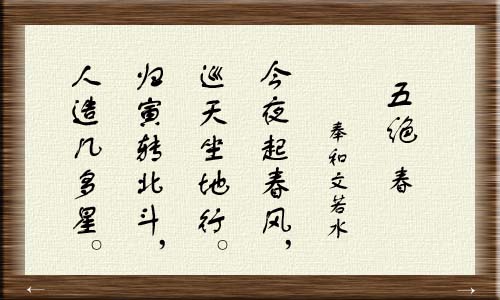 五绝 春
奉和文若水
今夜起春风，
巡天坐地行。
归寅转北斗，
人造几多星。